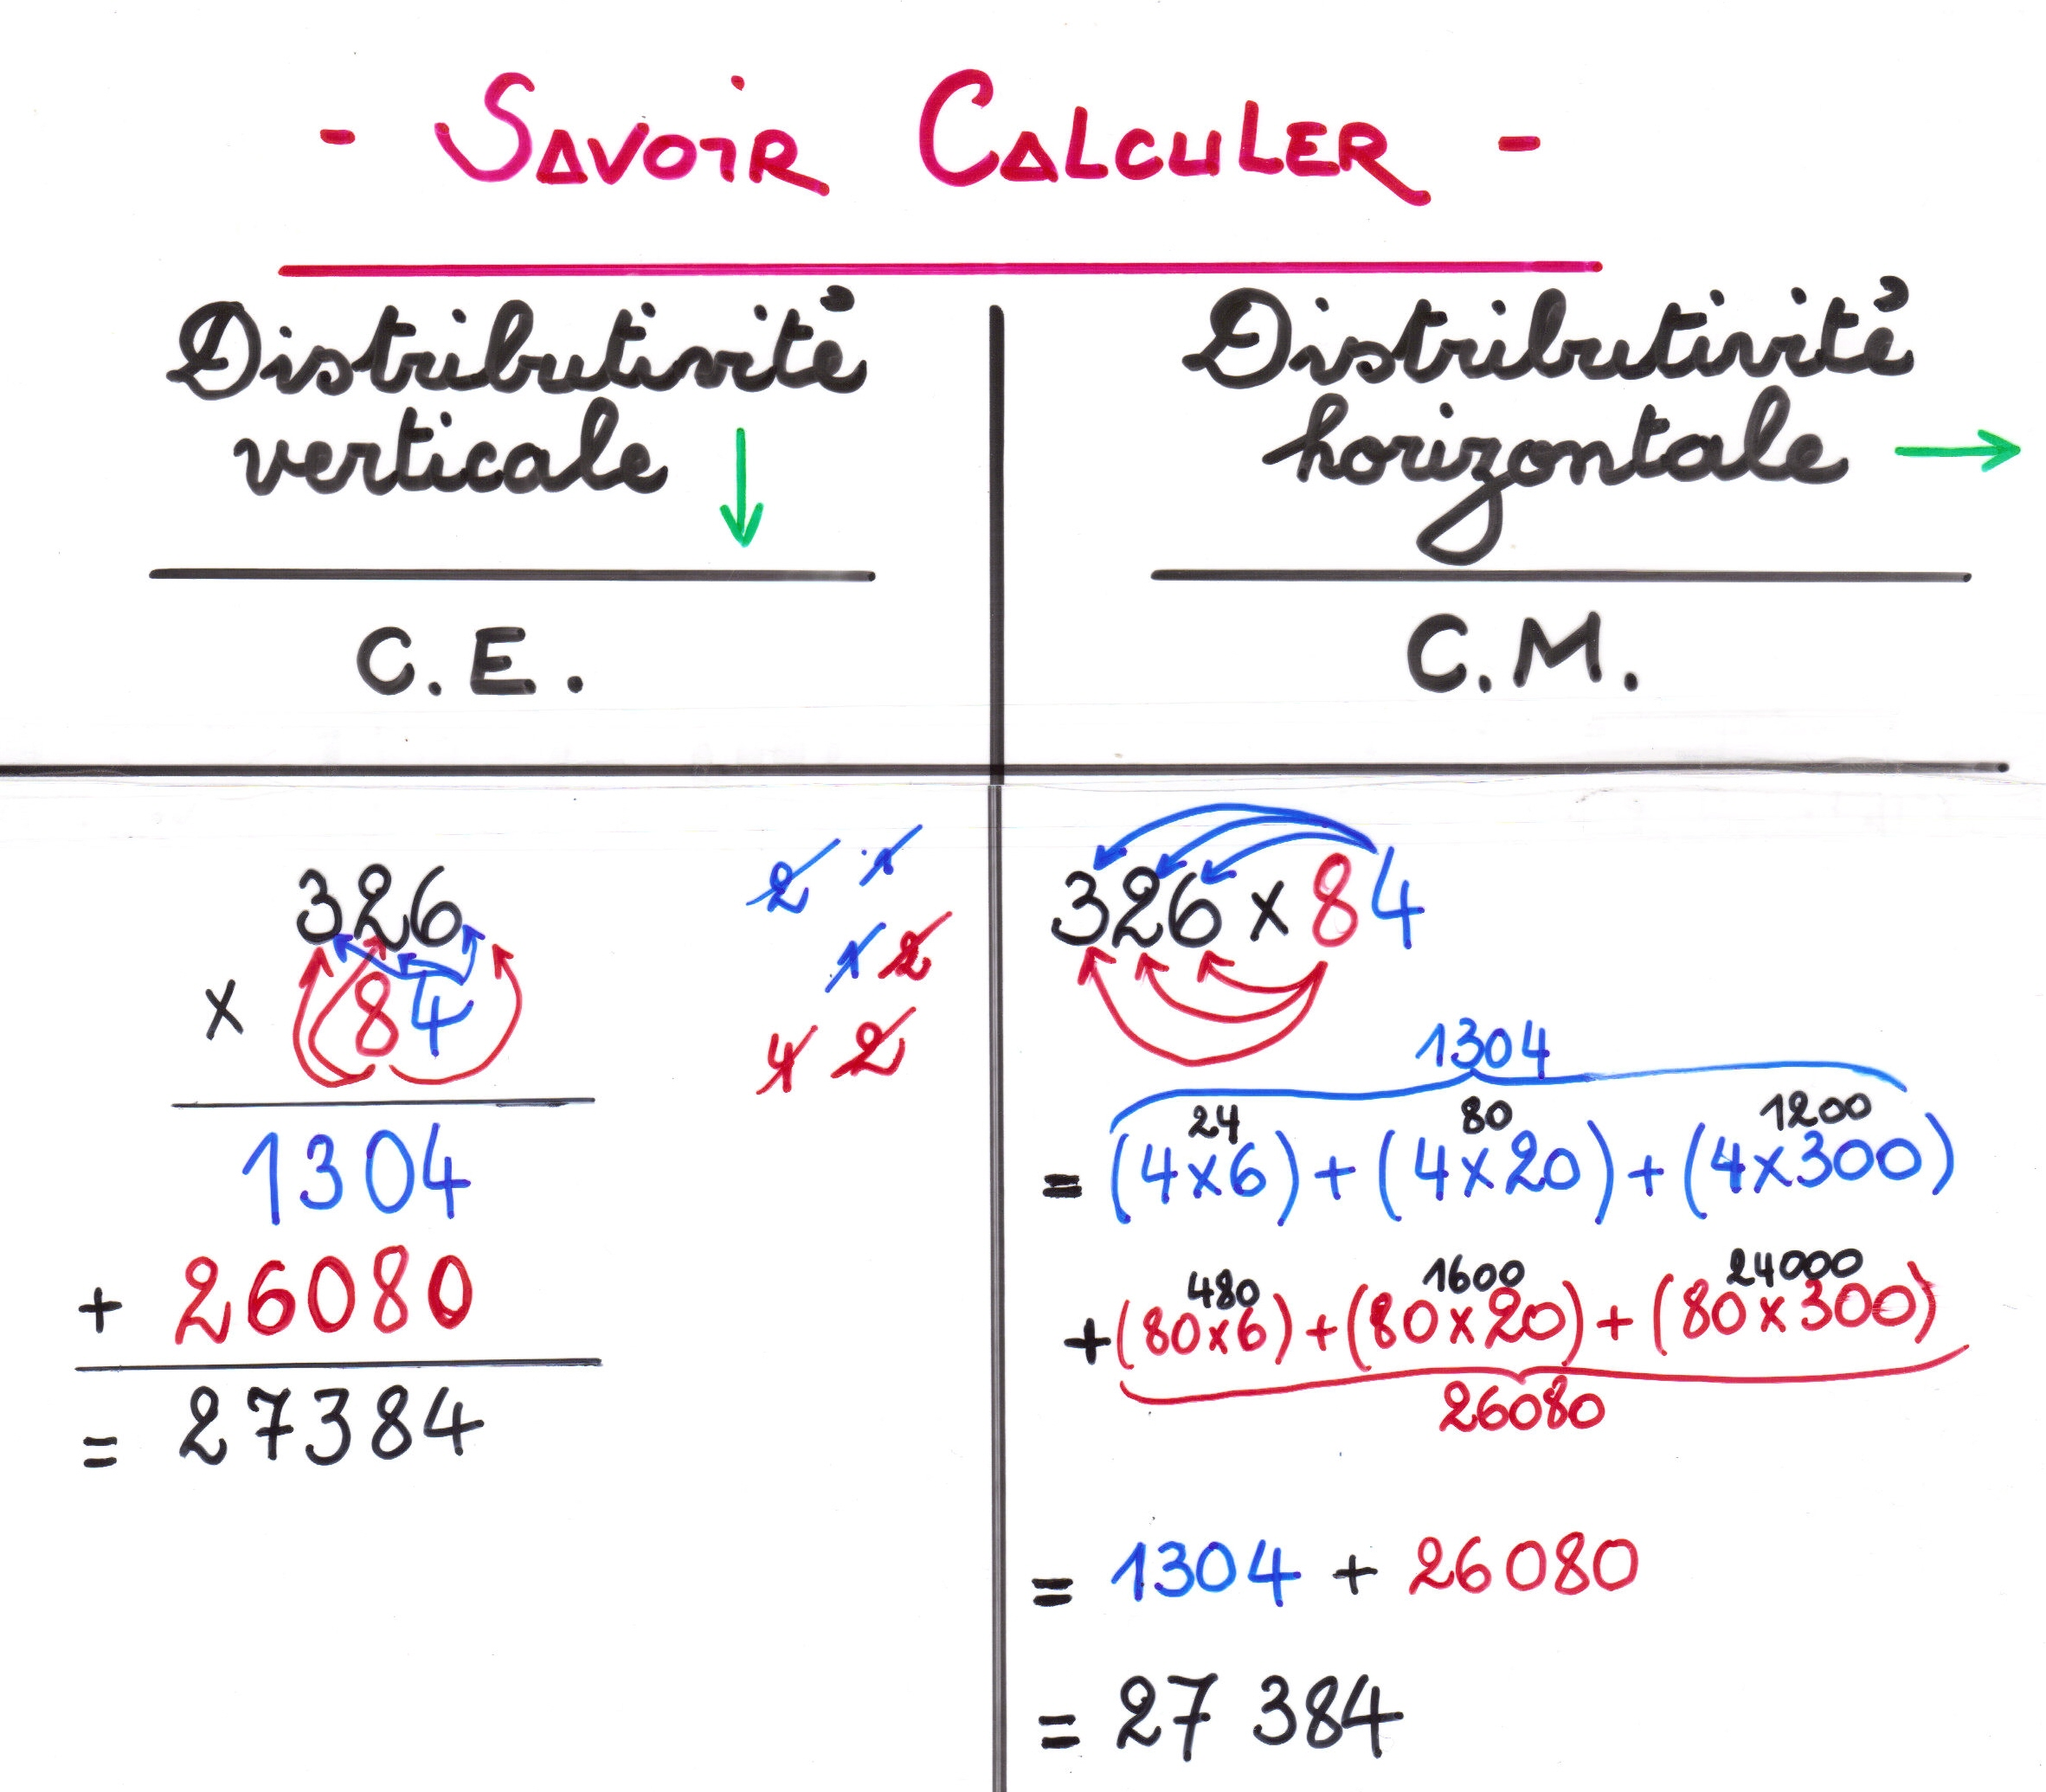 - SAVOIR CALCULER -
Distributivité
verticale
C.E.
326
x 84
1304
+ 26080
= 27384
2 1
1 2
4 2
Distributivité
horizontale
C.M.
326 x 84
1304
24 80 1200
= (4x6) + (4x20) + (4x300)
480 1600 24000
+ (80x6) + (80x20) + (80x300)
26080
= 1304 + 26080
= 27 384